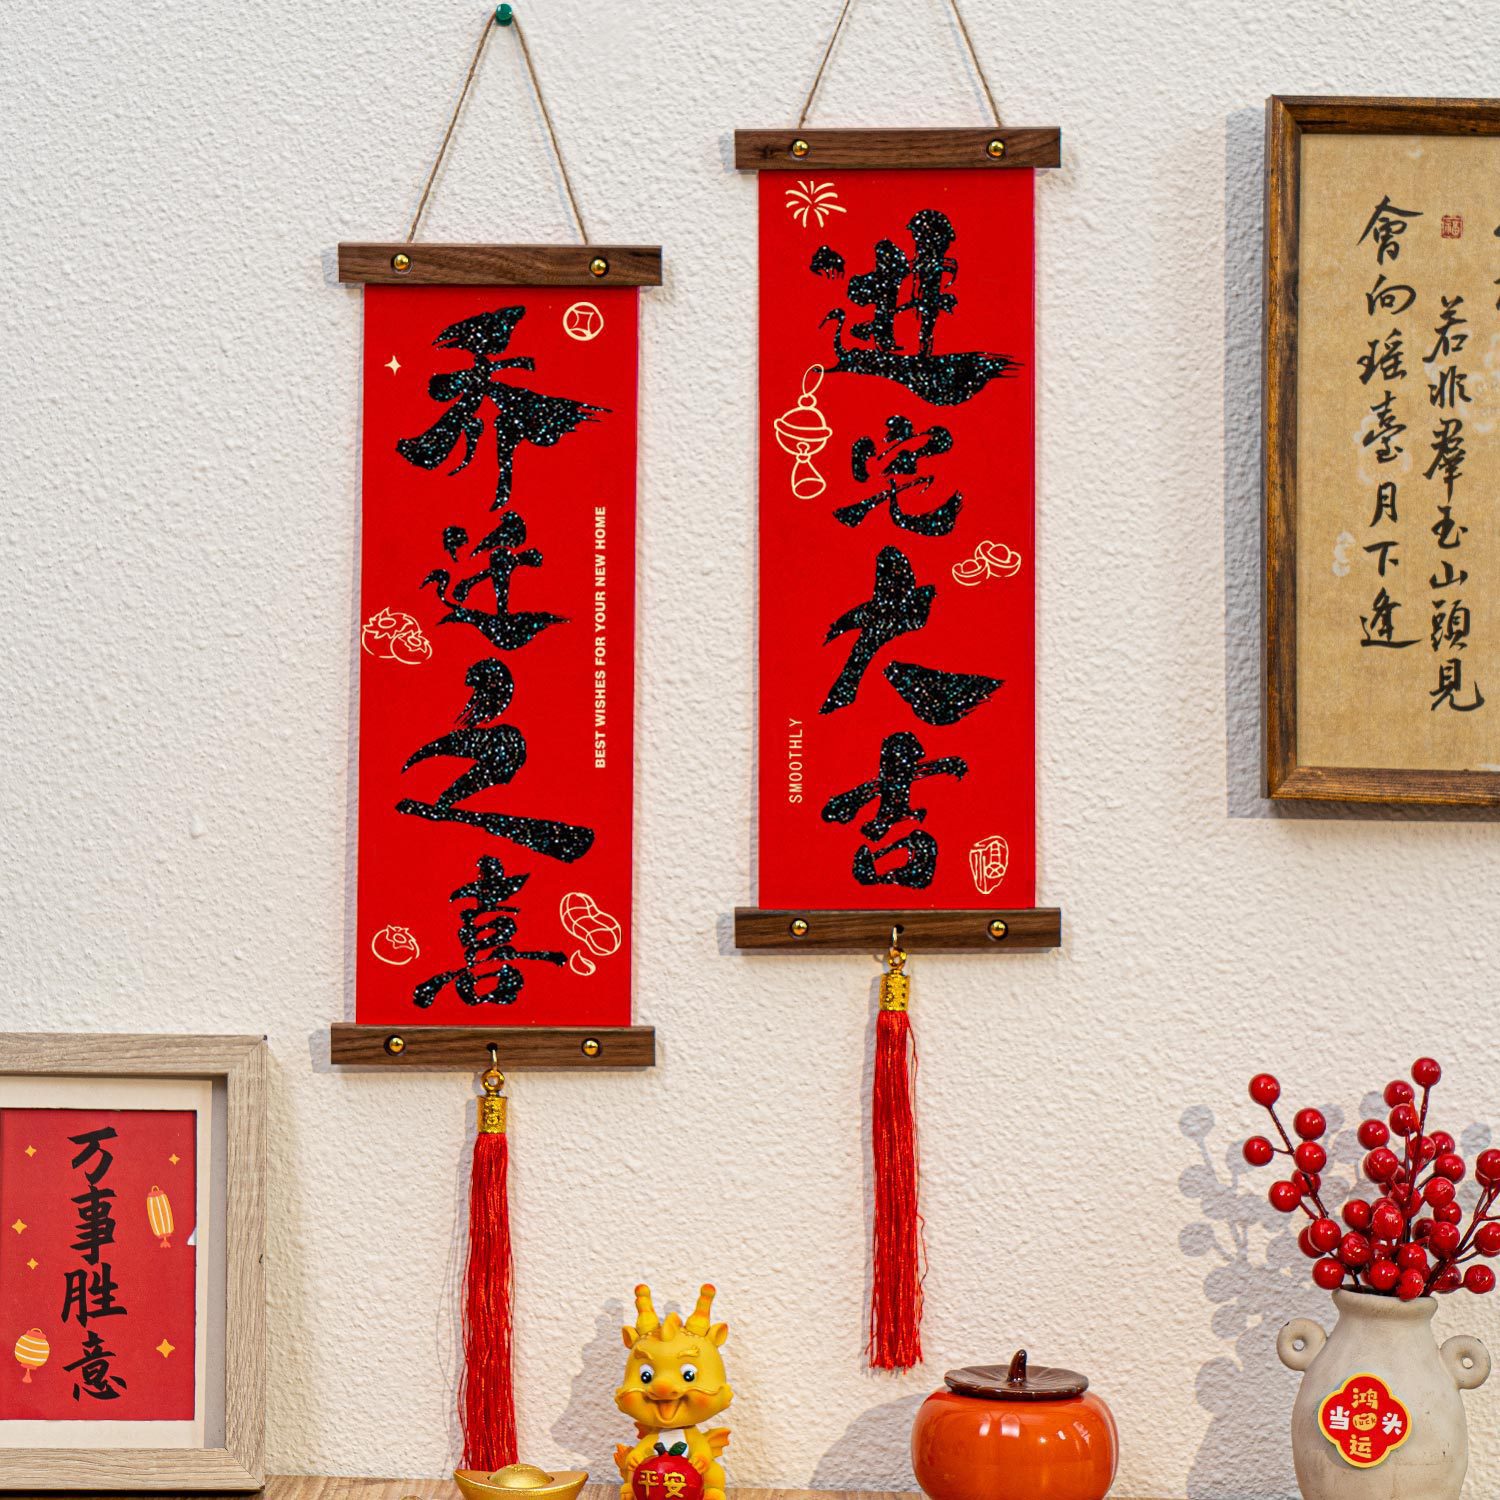 乔迁之喜
BEST WISHES FOR YOUR NEW HOME
进宅大吉
SMOOTHLY
福
若非群玉山頭見
會向瑶臺月下逢
万事胜意
平安
鸿运当头